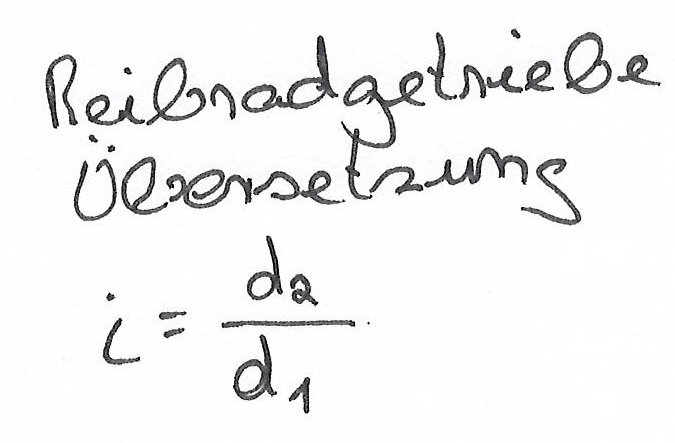 Reibradgetriebe
Übersetzung
i = d₂ / d₁